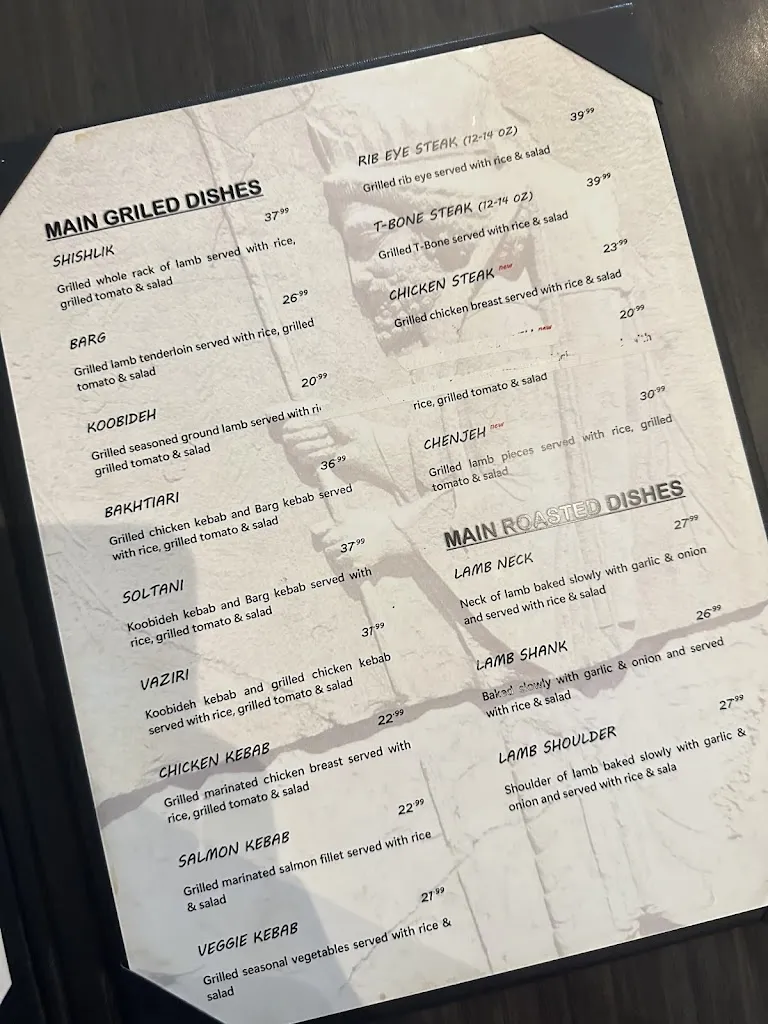 MAIN GRILED DISHES
SHISHLIK 37.99
Grilled whole rack of lamb served with rice,
grilled tomato & salad
BARG 26.99
Grilled lamb tenderloin served with rice, grilled
tomato & salad
KOOBIDEH 20.99
Grilled seasoned ground lamb served with
grilled tomato & salad
BAKHTIARI 36.99
Grilled chicken kebab and Barg kebab served
with rice, grilled tomato & salad
SOLTANI 37.99
Koobideh kebab and Barg kebab served with
rice, grilled tomato & salad
VAZIRI 31.99
Koobideh kebab and grilled chicken kebab
served with rice, grilled tomato & salad
CHICKEN KEBAB 22.99
Grilled marinated chicken breast served with
rice, grilled tomato & salad
SALMON KEBAB 22.99
Grilled marinated salmon fillet served with rice
& salad
VEGGIE KEBAB 21.99
Grilled seasonal vegetables served with rice &
salad
RIB EYE STEAK (12-14 OZ) 39.99
Grilled rib eye served with rice & salad
T-BONE STEAK (12-14 OZ) 39.99
Grilled T-Bone served with rice & salad
CHICKEN STEAK new 23.99
Grilled chicken breast served with rice & salad
new 20.99
rice, grilled tomato & salad
CHENJEH new 30.99
Grilled lamb pieces served with rice, grilled
tomato & salad
MAIN ROASTED DISHES
LAMB NECK 27.99
Neck of lamb baked slowly with garlic & onion
and served with rice & salad
LAMB SHANK 26.99
Baked slowly with garlic & onion and served
with rice & salad
LAMB SHOULDER 27.99
Shoulder of lamb baked slowly with garlic &
onion and served with rice & sala